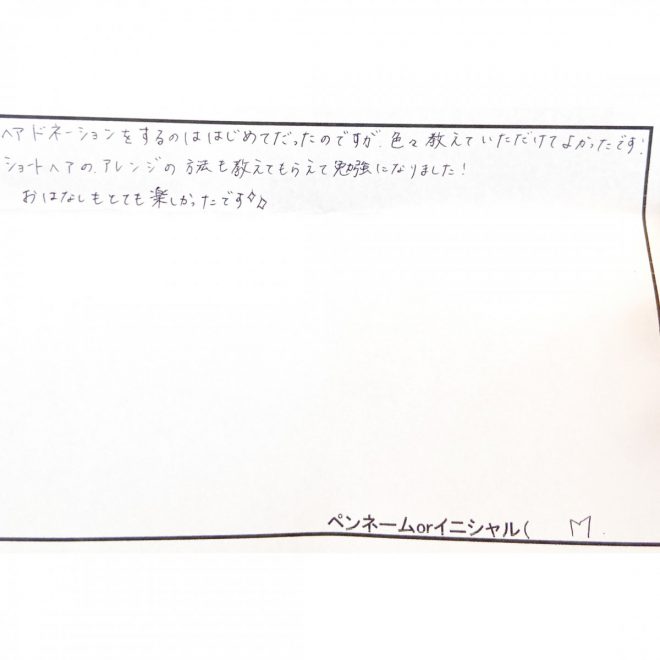 ヘアドネーションをするのははじめてだったのですが、色々教えていただけてよかったです!
ショートヘアの、アレンジの方法も教えてもらえて勉強になりました!
おはなしもとても楽しかったです♪♪
ペンネームorイニシャル( M.